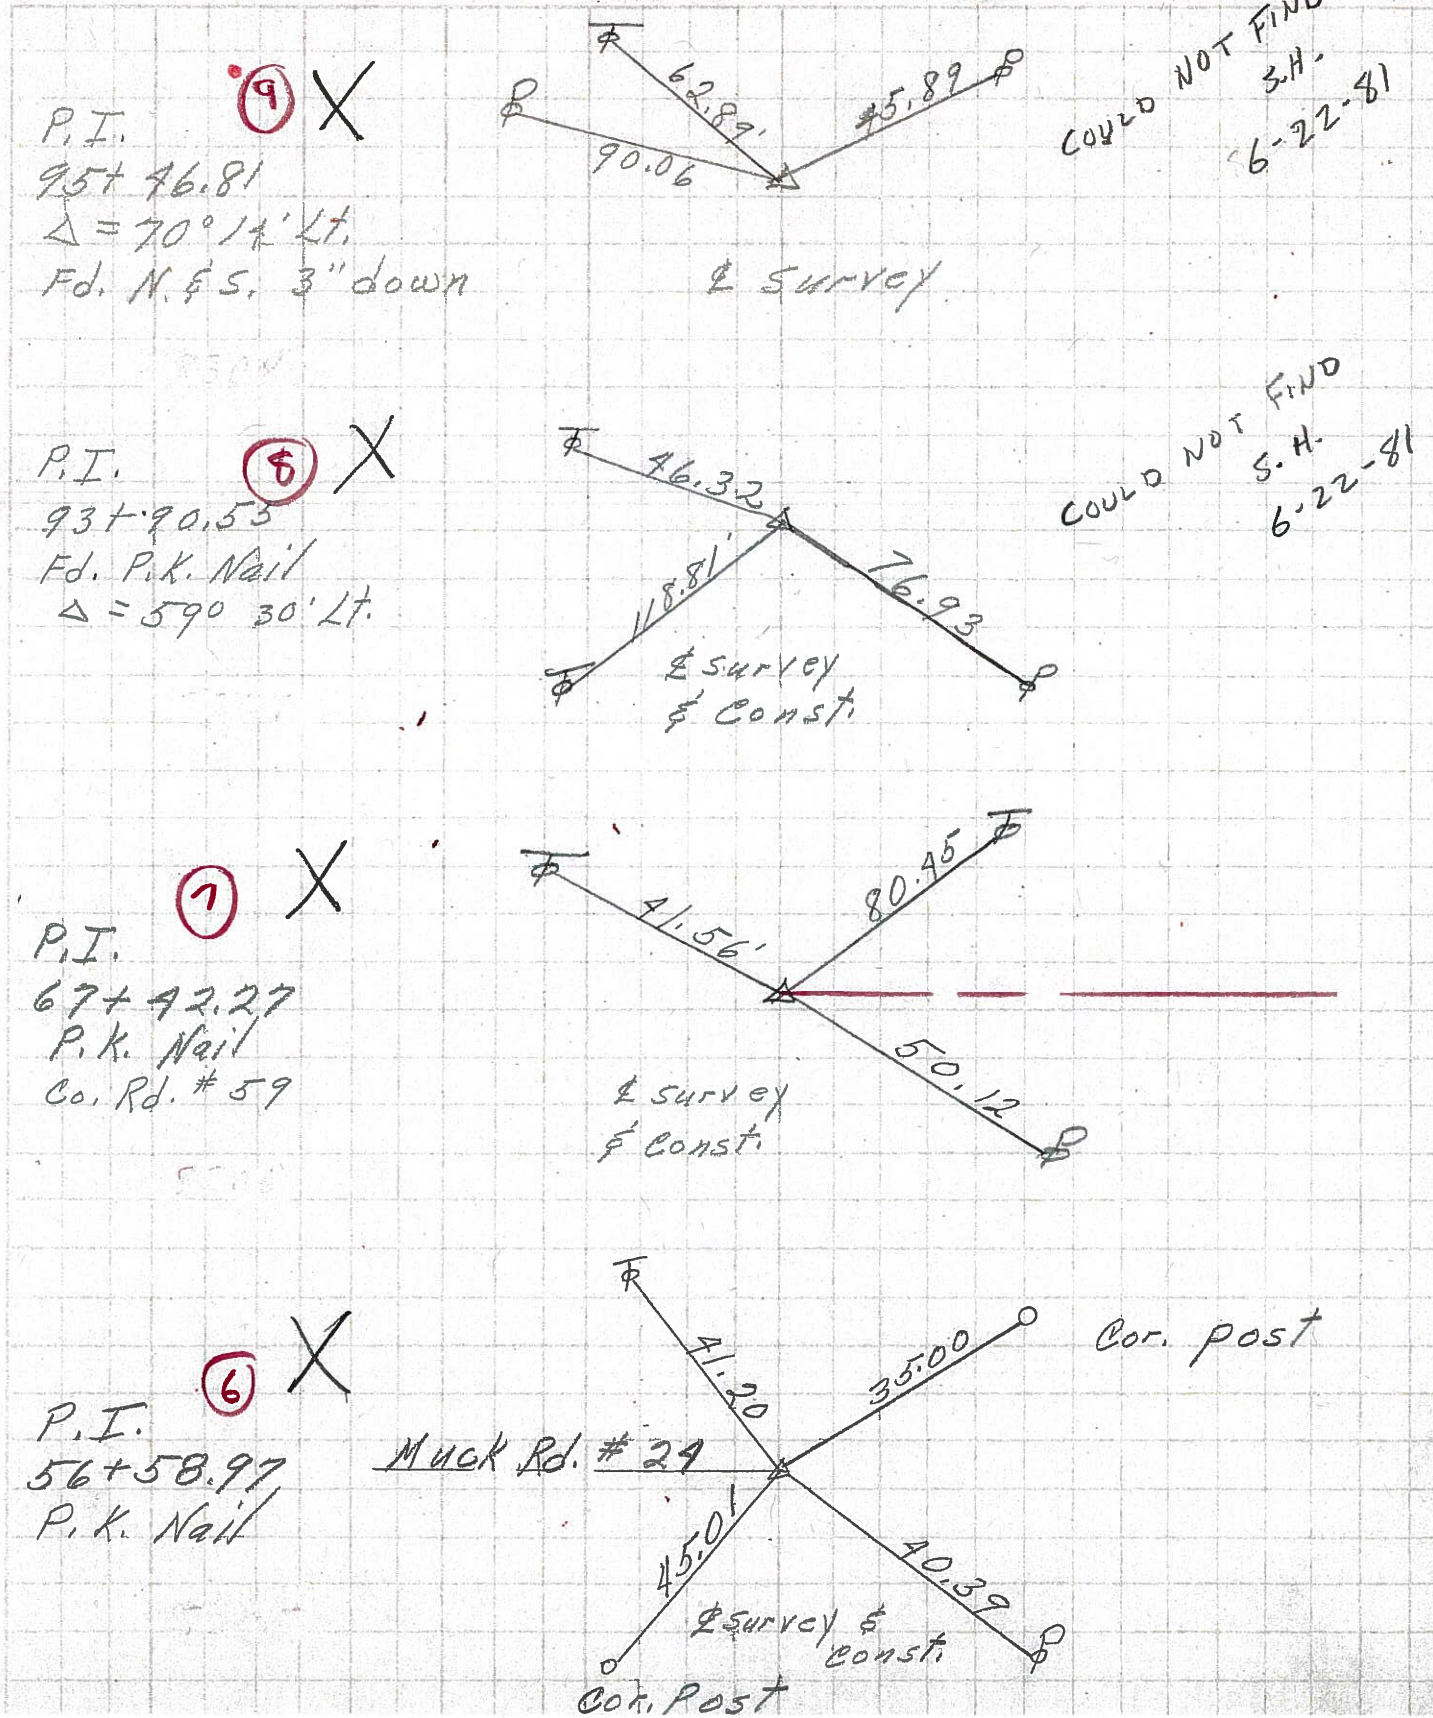 9 X
P.I.
95+ 46.81
Δ = 70° 14' Lt.
Fd. N. & S. 3" down
62.89'
90.06
45.89
℄ Survey
COULD NOT FIND
S.H.
6-22-81
8 X
P.I.
93+90.55
Fd. P.K. Nail
Δ = 59° 30' Lt.
46.32
118.81'
76.93
℄ survey
& Const.
COULD NOT FIND
S.H.
6-22-81
7 X
P.I.
67+42.27
P.K. Nail
Co. Rd. # 59
41.56'
80.45
50.12
℄ survey
& Const.
6 X
P.I.
56+58.97
P.K. Nail
Muck Rd. # 24
41.20
35.00
Cor. post
45.01
40.39
℄ Survey &
Const.
Cor. Post